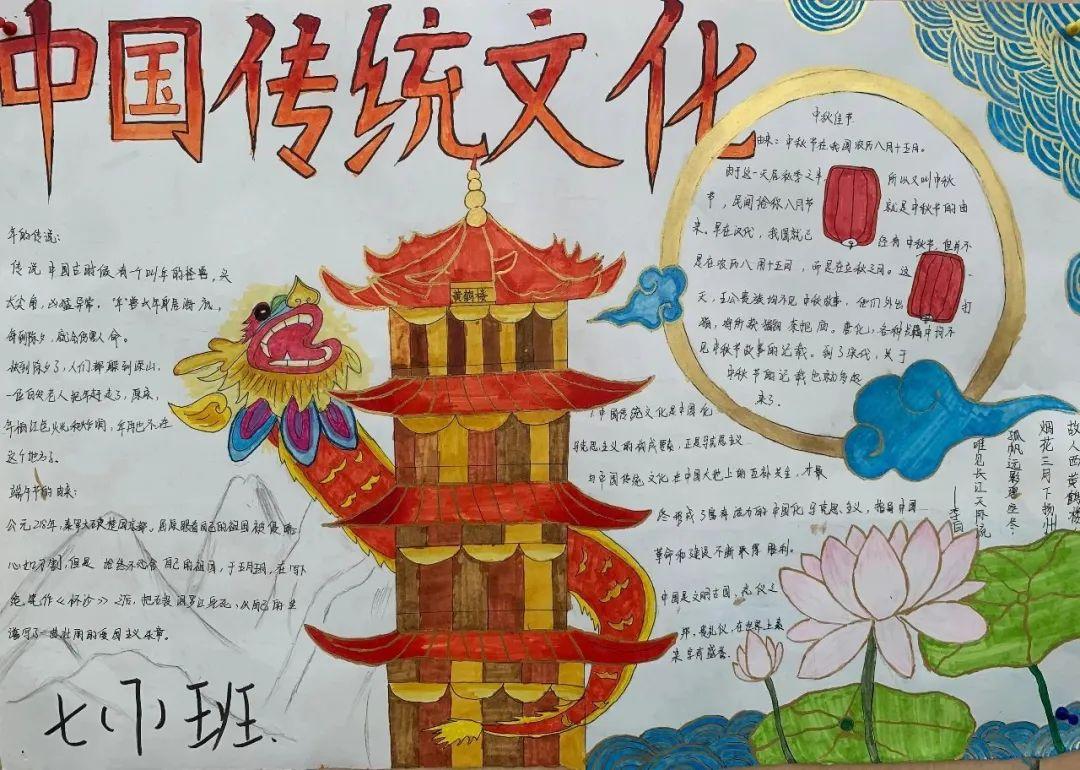 中国传统文化
年的传说:
传说中国古时候有个叫年的怪兽,头
大尖角,凶猛异常,年兽长年居海底,
每到除夕,就会伤害人命。
快到除夕了,人们都躲到深山,
一位白发老人把年赶走了,原来,
年怕红色火光和炸响,年再也不在
这个地方了。
端午节的由来:
公元278年,秦军大破楚国京都,屈原眼看自己的祖国被侵略,
心如刀割,但是始终不忍舍自己的祖国,于五月五日,在写下
绝笔作《怀沙》之后,
谱写了一曲壮丽的爱国主义乐章。
七(1)班
黄鹤楼
中秋佳节
由来:中秋节在我国农历八月十五日。
由于这一天居秋季之半 所以又叫中秋
节,民间俗称八月节 就是中秋节的由
来。早在汉代,我国就已经有中秋节,但并不
是在农历八月十五日,而是在立秋之日。这
天,王公贵族 他们外出打
猎,
见中秋节故事的记载。到了宋代,关于
中秋节的记载也就多起
来了。
中国传统文化是中国化
马克思主义的 正是马克思主义
与中国传统文化在中国大地上的互补共生,才最
终形成了富有活力的中国化马克思主义,指导中国
革命和建设不断取得胜利。
中国是文明古国,礼仪之
邦,重礼仪,在世界上素
来享有盛誉。
故人西辞黄鹤楼
烟花三月下扬州
孤帆远影碧空尽
唯见长江天际流
——李白